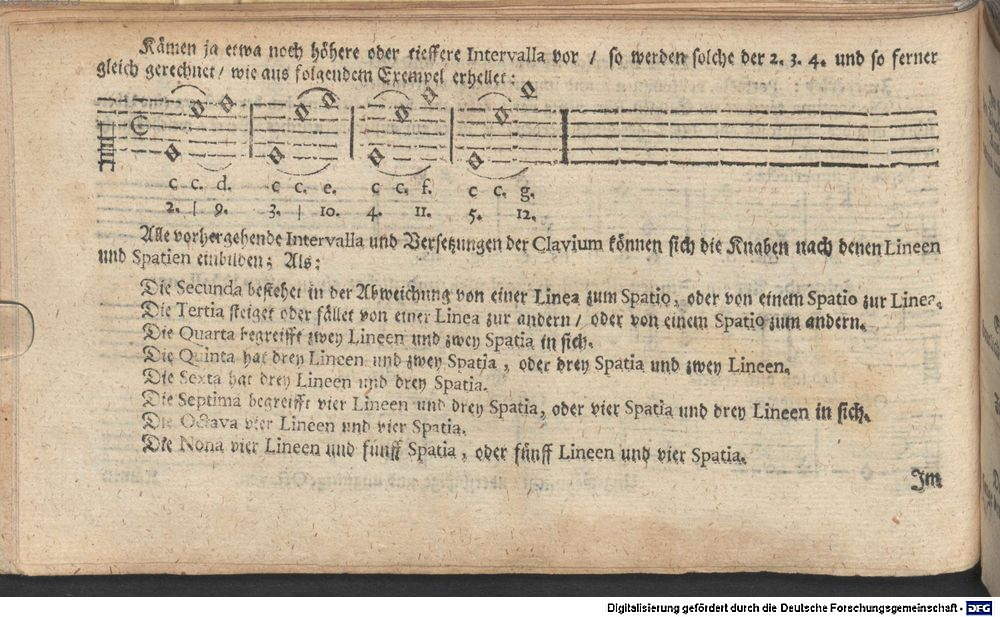 Kämen ja etwa noch höhere oder tieffere Intervalla vor / so werden solche der 2. 3. 4. und so ferner
gleich gerechnet / wie aus folgendem Exempel erhellet:
c c. d. c c. e. c c. f. c c. g.
2. | 9. 3. | 10. 4. 11. 5. 12.
Alle vorhergehende Intervalla und Versetzungen der Clavium können sich die Knaben nach denen Lineen
und Spatien einbilden; Als:
Die Secunda bestehet in der Abweichung von einer Linea zum Spatio, oder von einem Spatio zur Linea.
Die Tertia steiget oder fället von einer Linea zur andern / oder von einem Spatio zum andern.
Die Quarta begreifft zwey Lineen und zwey Spatia in sich.
Die Quinta hat drey Lineen und zwey Spatia, oder drey Spatia und zwey Lineen.
Die Sexta hat drey Lineen und drey Spatia.
Die Septima begreifft vier Lineen und drey Spatia, oder vier Spatia und drey Lineen in sich.
Die Octava vier Lineen und vier Spatia.
Die Nona vier Lineen und fünff Spatia, oder fünff Lineen und vier Spatia.
Im
Digitalisierung gefördert durch die Deutsche Forschungsgemeinschaft - DFG